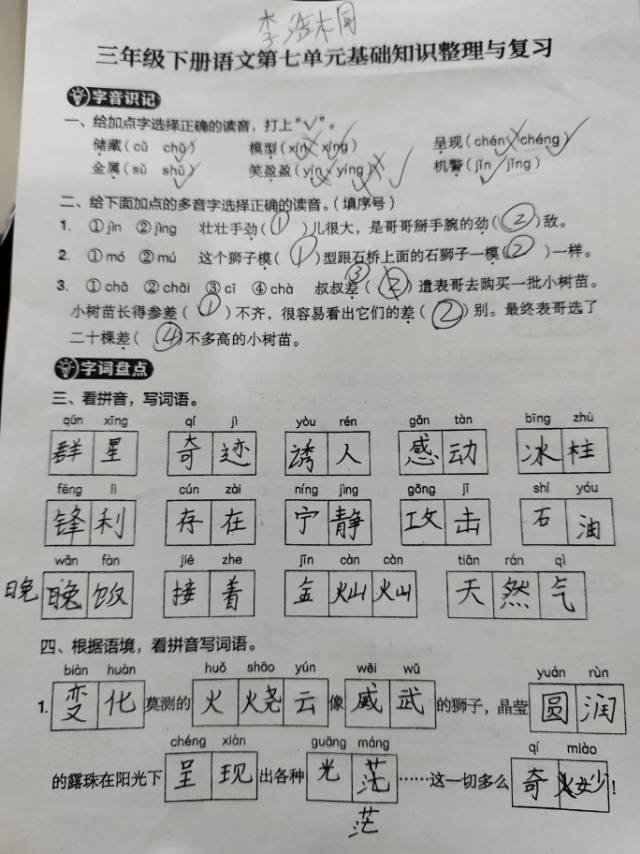 三年级下册语文第七单元基础知识整理与复习
字音识记
一、给加点字选择正确的读音，打上“√”。
储藏（cǔ chǔ√） 模型（xín xíng√） 呈现（chén chéng√）
金属（sǔ shǔ√） 笑盈盈（yín yíng√） 机警（jǐn jǐng√）
二、给下面加点的多音字选择正确的读音。（填序号）
1. ①jìn ②jìng 壮壮手劲（①）儿很大，是哥哥掰手腕的劲（②）敌。
2. ①mó ②mú 这个狮子模（①）型跟石桥上面的石狮子一模（②）一样。
3. ①chā ②chāi ③cī ④chà 叔叔差（②）遣表哥去购买一批小树苗。
③
小树苗长得参差（①）不齐，很容易看出它们的差（②）别。最终表哥选了
二十棵差（④）不多高的小树苗。
字词盘点
三、看拼音，写词语。
qún xīng qí jì yòu rén gǎn tàn bīng zhù
群星 奇迹 诱人 感动 冰柱
fēng lì cún zài níng jìng gōng jī shí yóu
锋利 存在 宁静 攻击 石油
wǎn fàn jiē zhe jīn càn càn tiān rán qì
晚 晚饭 接着 金灿灿 天然气
四、根据语境，看拼音写词语。
biàn huàn huǒ shāo yún wēi wǔ yuán rùn
1. 变化莫测的火烧云像威武的狮子，晶莹圆润
chéng xiàn guāng máng qí miào
的露珠在阳光下呈现出各种光茫……这一切多么奇妙！
茫